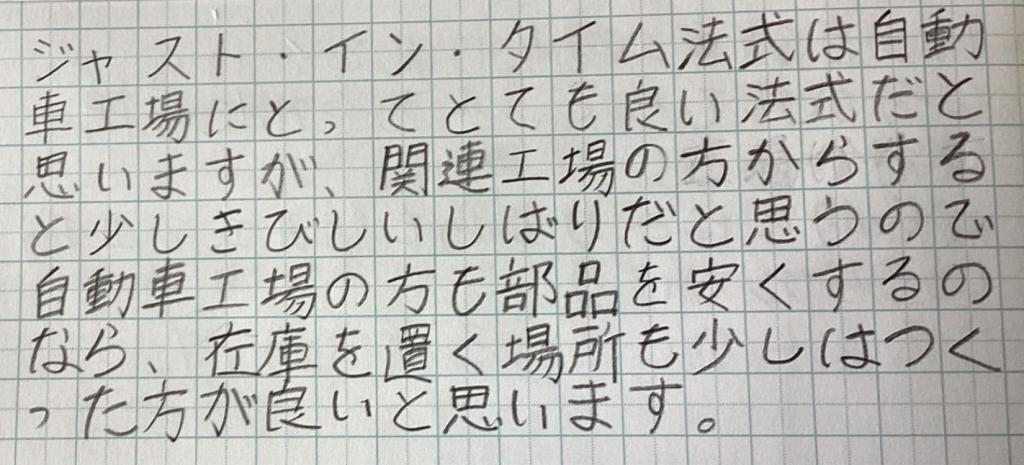 ジャスト・イン・タイム法式は自動
車工場にとってとても良い法式だと
思いますが、関連工場の方からする
と少しきびしいしばりだと思うので
自動車工場の方も部品を安くするの
なら、在庫を置く場所も少しはつく
った方が良いと思います。